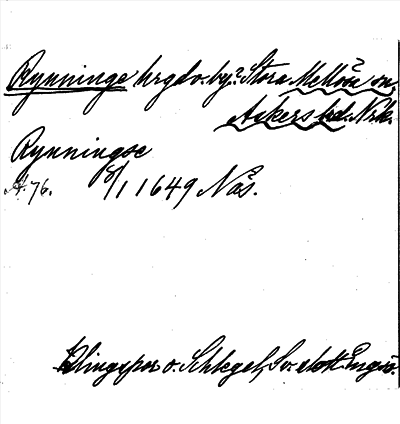 Rynninge hrgd o. by? Stora Mellösa sn,
Askers hd. Nrk.
Rynningse
A. 76. 8/1 1649 Näs.
Klingspor o. Schlegel, Sv. slott Engsö.